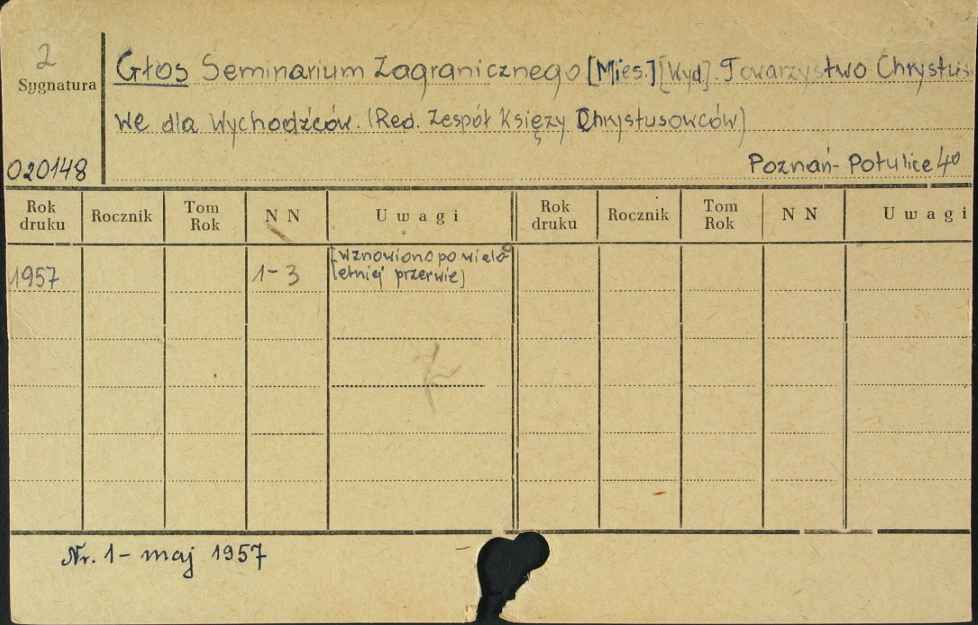 2
Sygnatura
Głos Seminarium Zagranicznego [Mies.] [Wyd]. Towarzystwo Chrystuso
we dla Wychodźców. (Red. Zespół Księży Chrystusowców)
020148
Poznań - Potulice 40
Rok druku Rocznik Tom Rok NN Uwagi Rok druku Rocznik Tom Rok NN Uwagi
1957 1-3 [wznowiono po wielo
letniej przerwie]
Nr. 1 - maj 1957